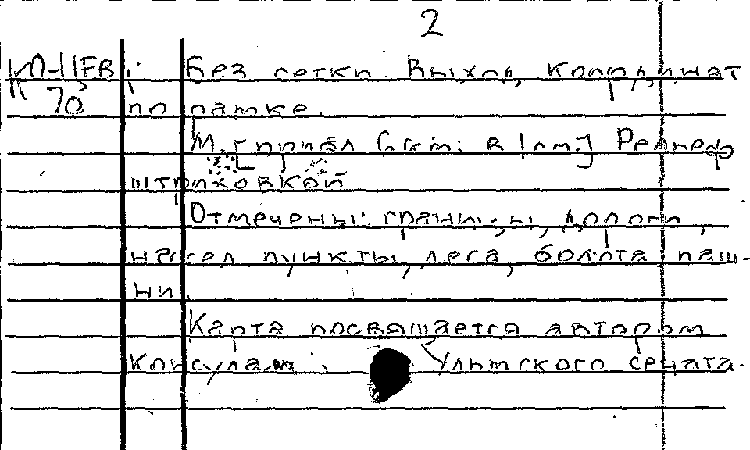 2
КП-IIFB Без сетки. Выход, координат
70 по рамке.
М. 6 km. в 1 Рельеф
штриховкой
Отмечены: границы, дороги,
насел пункты, леса, болота паш-
ни.
Карта посвящается автором
Консулам Ульмского сената.